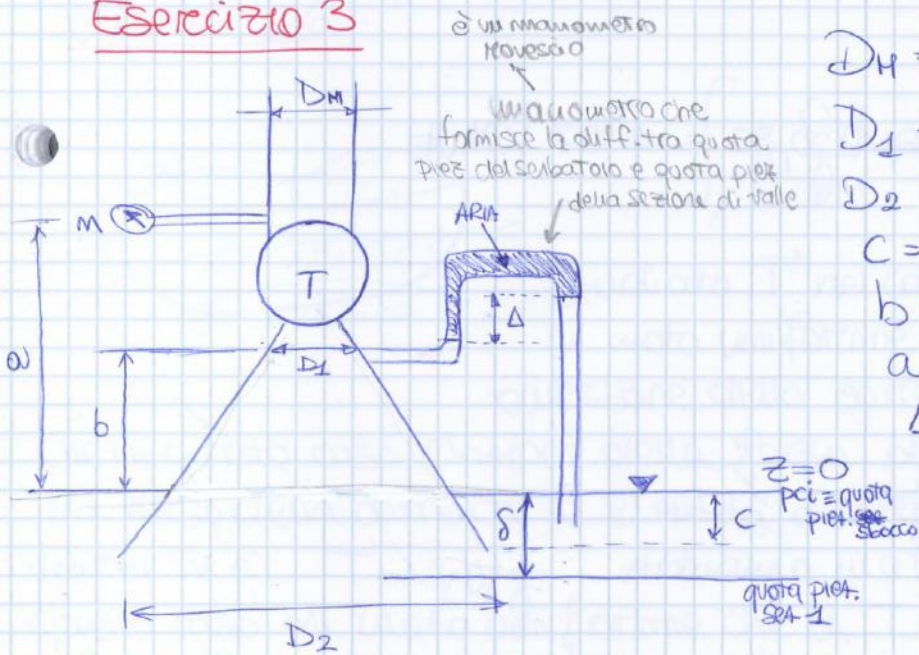 Esercizio 3
è un manometro
rovescio
manometro che
fornisce la diff. tra quota
piez del serbatoio e quota piez
della sezione di valle
DM
ARIA
m
T
Δ
D1
a
b
δ
c
D2
Z=0
pci ≡ quota
piez.
sbocco
quota piez.
sez 1
DM =
D1
D2
C =
b
a